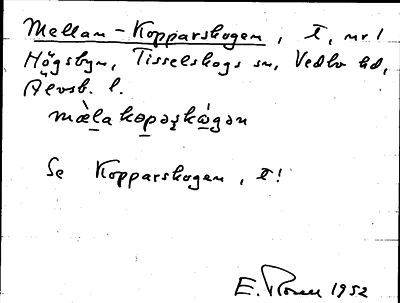 Mellam-Kopparskogen, t, nr 1
Högsbyn, Tisselskogs sn, Vedbo hd,
Älvsb. l.
mæ̀la kɷpaʂkɷ́gən
Se Kopparskogen, t!
E. Rosell 1952